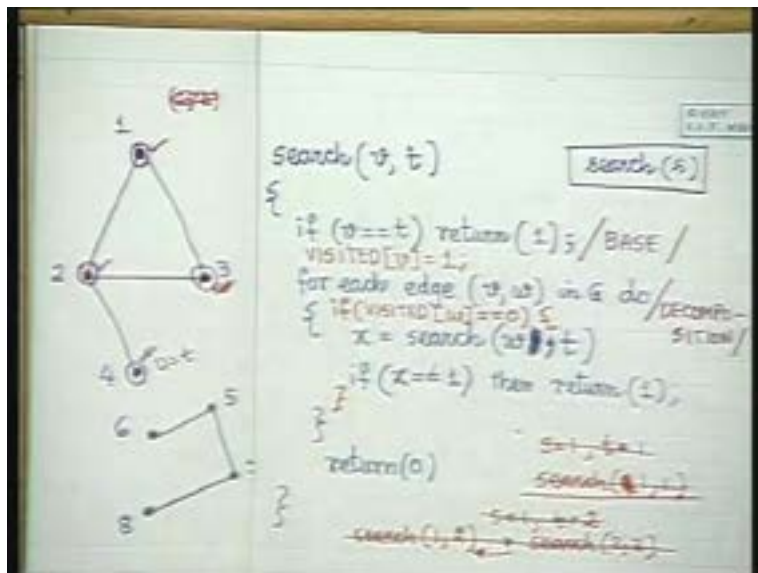 1
2
3
4 = t
5
6
8
search(v, t)
search(s)
{
if (v==t) return(1); /BASE/
VISITED[v]=1;
for each edge (v,w) in G do /DECOMPO-
SITION/
{ if(VISITED[w]==0) {
x = search(w, t)
if (x==1) then return(1);
}
}
return(0)
}
s=1, t=1
s=1, t=2